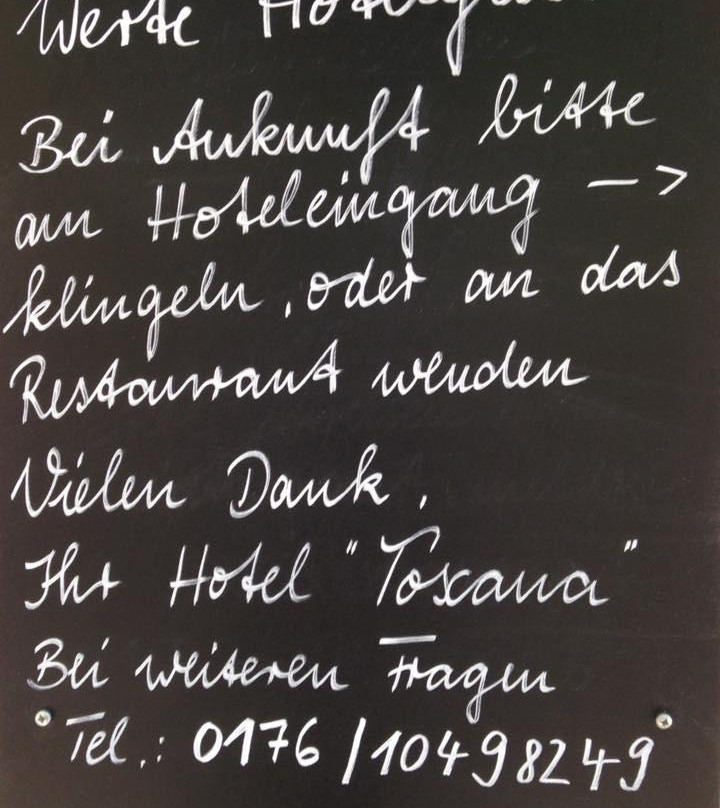 Werte Hotelgäste
Bei Ankunft bitte
am Hoteleingang —>
klingeln, oder an das
Restaurant wenden
Vielen Dank,
Ihr Hotel "Toscana"
Bei weiteren Fragen
Tel.: 0176/10498249